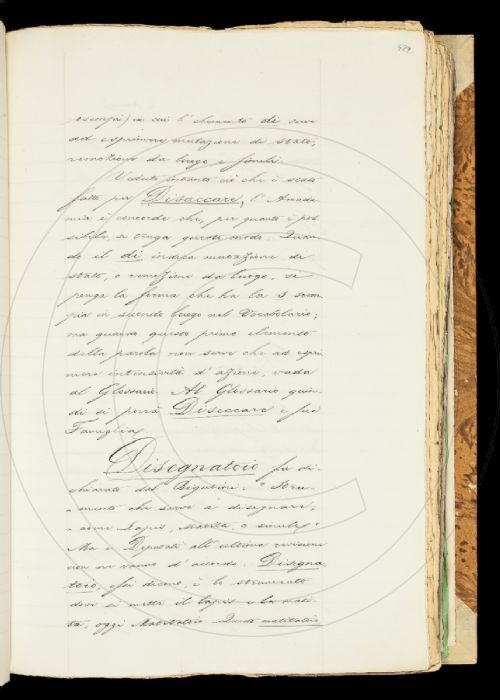 489
esempi) in cui l'elemento di serve
ad esprimere mutazione di stato,
remozione da luogo e simili.
Veduto intanto ciò che è stato
fatto per Disaccare, l'Accade
mia è concorde che, per quanto è pos
sibile, si tenga questo modo. Quan
do il di indica mutazione di
stato, o remozione da luogo, si
ponga la forma che ha la s sem
pia in secondo luogo nel Vocabolario;
ma quando questo primo elemento
della parola non serve che ad espri
mere intensività d'azione, vada
al Glossario. Al Glossario quin
di si porrà Diseccare e sua
Famiglia.
Disegnatoio fu di-
chiarato dal Rigutini: "Stru-
"mento che serve a disegnare;
"come Lapis, Matita, o simile."
Ma i Deputati all'ultima revisione
non ne vanno d'accordo. Disegna-
toio, essi dicono, è lo strumento
dove si mette il lapis o la mati-
ta, oggi Matitatoio. Quindi matitatoio